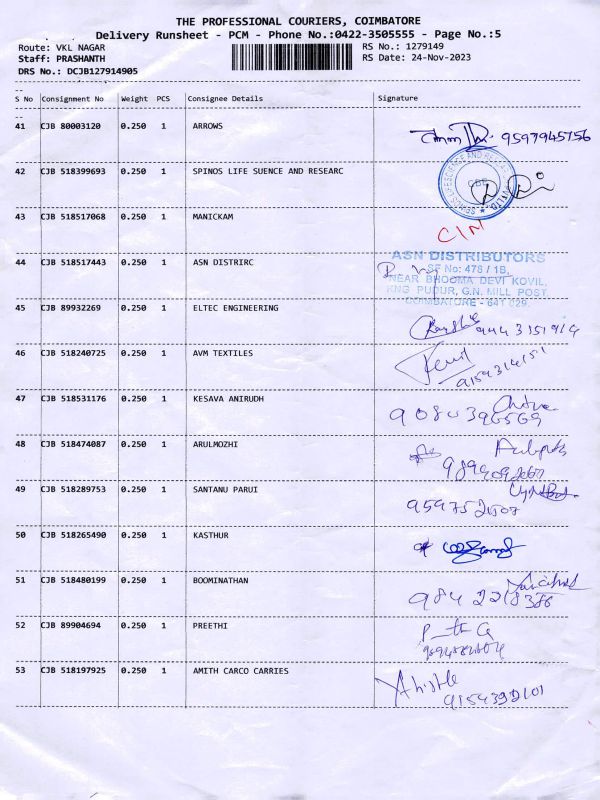 THE PROFESSIONAL COURIERS, COIMBATORE
Delivery Runsheet - PCM - Phone No.:0422-3505555 - Page No.:5
Route: VKL NAGAR RS No.: 1279149
Staff: PRASHANTH RS Date: 24-Nov-2023
DRS No.: DCJB127914905
S No Consignment No Weight PCS Consignee Details Signature
41 CJB 80003120 0.250 1 ARROWS 9597945756
42 CJB 518399693 0.250 1 SPINOS LIFE SUENCE AND RESEARC
CBE
43 CJB 518517068 0.250 1 MANICKAM
44 CJB 518517443 0.250 1 ASN DISTRIRC
ASN DISTRIBUTORS
SF No: 478 / 1B,
NEAR BHOOMA DEVI KOVIL,
KNG PUDUR, G.N. MILL POST
COIMBATORE - 641 029.
45 CJB 89932269 0.250 1 ELTEC ENGINEERING
46 CJB 518240725 0.250 1 AVM TEXTILES
47 CJB 518531176 0.250 1 KESAVA ANIRUDH
48 CJB 518474087 0.250 1 ARULMOZHI
49 CJB 518289753 0.250 1 SANTANU PARUI
50 CJB 518265490 0.250 1 KASTHUR
51 CJB 518480199 0.250 1 BOOMINATHAN
52 CJB 89904694 0.250 1 PREETHI
53 CJB 518197925 0.250 1 AMITH CARCO CARRIES